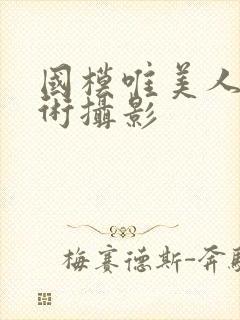 國模唯美人
術攝影
梅賽德斯-奔